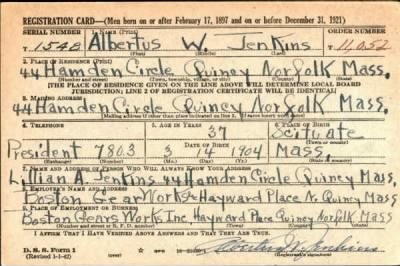 REGISTRATION CARD—(Men born on or after February 17, 1897 and on or before December 31, 1921)
SERIAL NUMBER 1. NAME (Print) ORDER NUMBER
T 1548 Albertus W. Jenkins T 11,052
(First) (Middle) (Last)
2. PLACE OF RESIDENCE (Print)
44 Hamden Circle Quincy Norfolk Mass.
(Number and street) (Town, township, village, or city) (County) (State)
[THE PLACE OF RESIDENCE GIVEN ON THE LINE ABOVE WILL DETERMINE LOCAL BOARD
JURISDICTION; LINE 2 OF REGISTRATION CERTIFICATE WILL BE IDENTICAL]
3. MAILING ADDRESS
44 Hamden Circle Quincy Norfolk Mass.
[Mailing address if other than place indicated on line 2. If same insert word same]
4. TELEPHONE 5. AGE IN YEARS 6. PLACE OF BIRTH
37 Scituate
DATE OF BIRTH (Town or county)
President 7803 3 14 1904 Mass
(Exchange) (Number) (Mo.) (Day) (Yr.) (State or country)
7. NAME AND ADDRESS OF PERSON WHO WILL ALWAYS KNOW YOUR ADDRESS
Lillian A. Jenkins 44 Hamden Circle Quincy Mass
8. EMPLOYER'S NAME AND ADDRESS
Boston Gear Works Hayward Place N. Quincy Mass
9. PLACE OF EMPLOYMENT OR BUSINESS
Boston Gears Works Inc. Hayward Place Quincy Norfolk Mass
(Number and street or R. F. D. number) (Town) (County) (State)
I AFFIRM THAT I HAVE VERIFIED ABOVE ANSWERS AND THAT THEY ARE TRUE.
D. S. S. Form 1
(Revised 1-1-42) (over) Jenkins